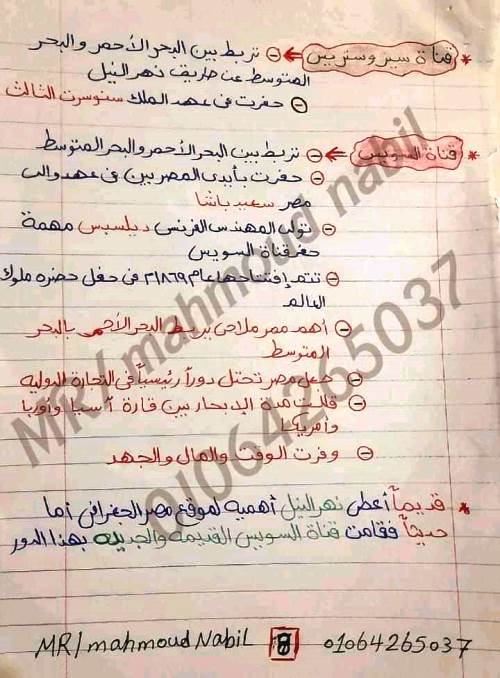 * قناة سيزوستريس ← ⊖ تربط بين البحر الأحمر والبحر
المتوسط عن طريق نهر النيل
⊖ حفرت فى عهد الملك سنوسرت الثالث
* قناة السويس ← ⊖ تربط بين البحر الأحمر والبحر المتوسط
⊖ حفرت بأيدى المصريين فى عهد والى
مصر سعيد باشا
⊖ تولى المهندس الفرنسى ديلسبس مهمة
حفر قناة السويس
⊖ تتم إفتتاحها عام ١٨٦٩م فى حفل حضره ملوك
العالم
⊖ أهم ممر ملاحى يربط البحر الأحمر بالبحر
المتوسط
⊖ جعل مصر تحتل دوراً رئيسياً فى التجارة الدولية
⊖ قللت مدة الإبحار بين قارة أسيا وأوربا
وأمريكا
⊖ وفرت الوقت والمال والجهد
* قديماً أعطى نهر النيل أهمية لموقع مصر الجغرافى أما
حديثاً فقامت قناة السويس القديمة والجديدة بهذا الدور
MR/mahmoud Nabil 8 01064265037
MR/mahmoud nabil
01064265037